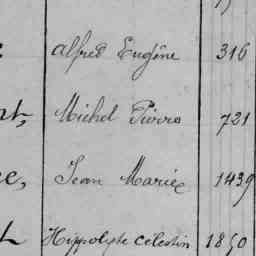 Alfred Eugêne 316
Michel Pierre 721
Jean Marie 1439
Hippolyte Celestin 1850